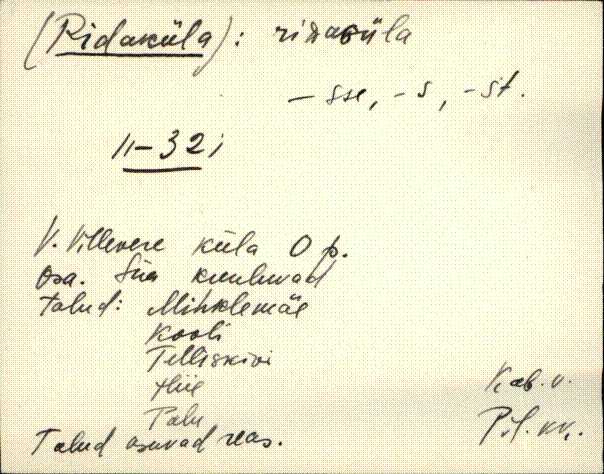 (Ridaküla): ridaküla
– sse, -s, -st.
II-32i
V. Villevere küla O p.
osa. Siia kuuluvad
talud: Mihklemäe
Kooli
Telliskivi
Hiie
Palu
Kab. v.
Pil. kk.
Talud asuvad reas.